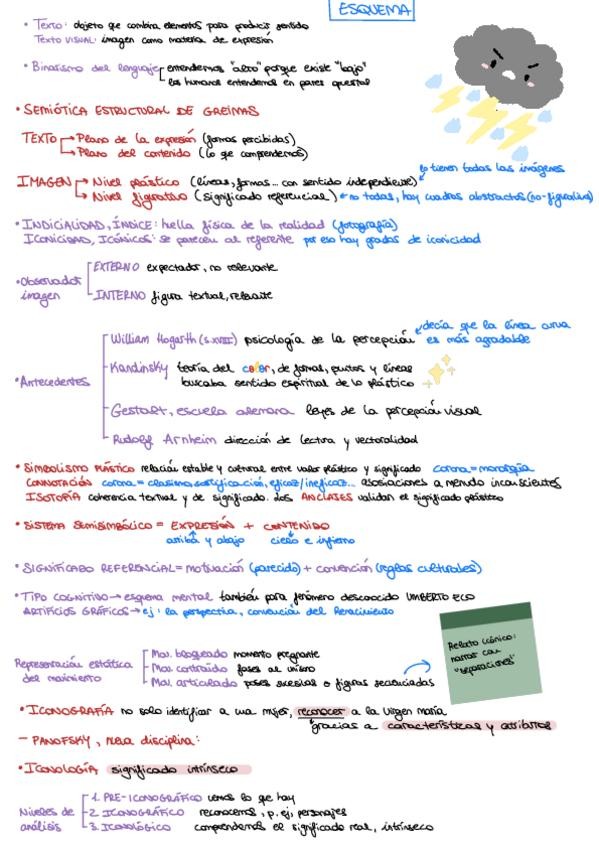 ESQUEMA
• TEXTO: objeto que combina elementos para producir sentido
TEXTO VISUAL: imagen como materia de expresión
• Binarismo del lenguaje entendemos "alto" porque existe "bajo"
los humanos entendemos en pares
• SEMIÓTICA ESTRUCTURAL DE GREIMAS
TEXTO → Plano de la expresión (formas percibidas)
→ Plano del contenido (lo que comprendemos)
lo tienen todas las imágenes
IMAGEN → Nivel plástico (líneas, formas... con sentido independiente)
→ Nivel figurativo (significado referencial) no todas, hay cuadros abstractos (no-figurativo)
• INDICIALIDAD, ÍNDICE: huella física de la realidad (fotografía)
ICONICIDAD, ICÓNICOS: se parecen al referente por eso hay grados de iconicidad
• Observador imagen
EXTERNO espectador, no relevante
INTERNO figura textual, relevante
• Antecedentes
William Hogarth (s.XVIII) psicología de la percepción decía que la línea curva es más agradable
Kandinsky teoría del color, de formas, puntos y líneas
buscaba sentido espiritual de lo plástico
Gestalt, escuela alemana leyes de la percepción visual
Rudolf Arnheim dirección de lectura y vectorialidad
• SIMBOLISMO PLÁSTICO relación estable y cultural entre valor plástico y significado corona = monarquía
CONNOTACIÓN corona = clasismo, eficaz/ineficaz... asociaciones a menudo inconscientes
ISOTOPÍA coherencia textual y de significado. Los ANCLAJES validan el significado plástico
• SISTEMA SEMISIMBÓLICO = EXPRESIÓN + CONTENIDO
arriba y abajo cielo e infierno
• SIGNIFICADO REFERENCIAL = motivación (parecido) + convención (reglas culturales)
• TIPO COGNITIVO → esquema mental también para fenómeno desconocido UMBERTO ECO
ARTIFICIOS GRÁFICOS → ej: la perspectiva, convención del Renacimiento
Representación estática del movimiento
Mov. bloqueado momento pregnante
Mov. contraído fases al unísono
Mov. articulado poses sucesivas o figuras secuenciadas
Relato icónico:
narrar con
"separaciones"
• ICONOGRAFÍA no solo identificar a una mujer, reconocer a la Virgen María
gracias a características y atributos
— PANOFSKY, nueva disciplina:
• ICONOLOGÍA significado intrínseco
Niveles de análisis
1. PRE-ICONOGRÁFICO vemos lo que hay
2. ICONOGRÁFICO reconocemos, p. ej, personajes
3. ICONOLÓGICO comprendemos el significado real, intrínseco